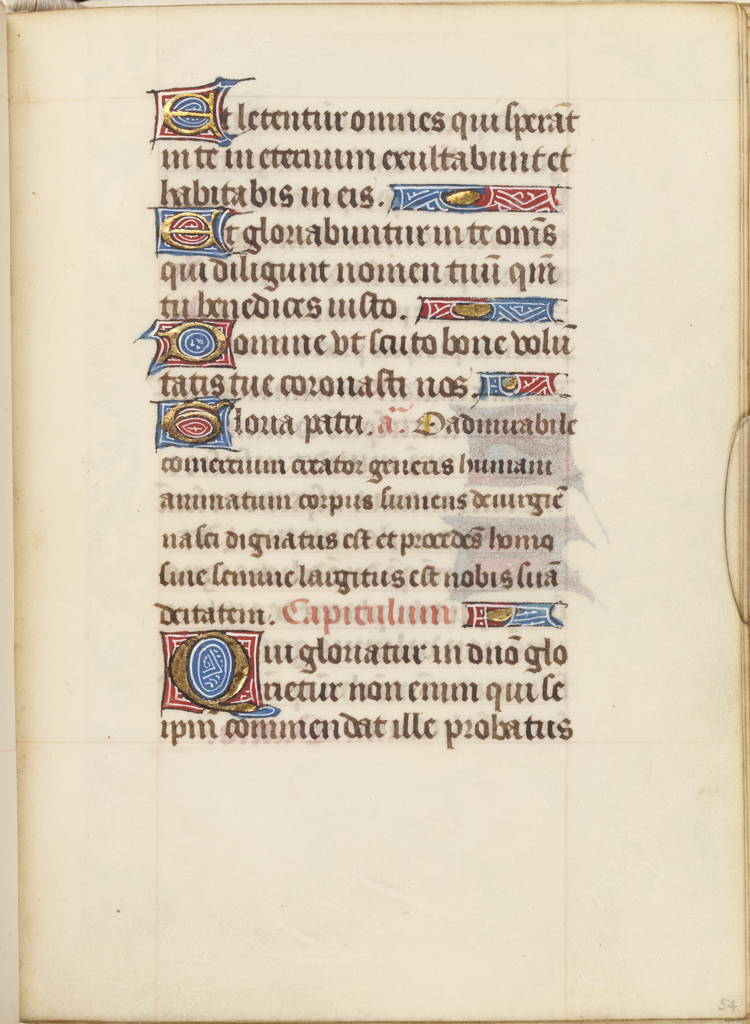 Et letentur omnes qui sperāt
in te in eternum exultabunt et
habitabis in eis.
Et gloriabuntur in te om̄s
qui diligunt nomen tuū qm̄
tu benedices iusto.
Domine vt scuto bone volū
tatis tue coronasti nos.
Gloria patri. a. O admirabile
comercium creator generis humani
animatum corpus sumens de uirgiē
nasci dignatus est et procedēs homo
sine semine largitus est nobis suā
deitatem. Capitulum
Qui gloriatur in dn̄o glo
rietur non enim qui se
ipm̄ commendat ille probatus
54